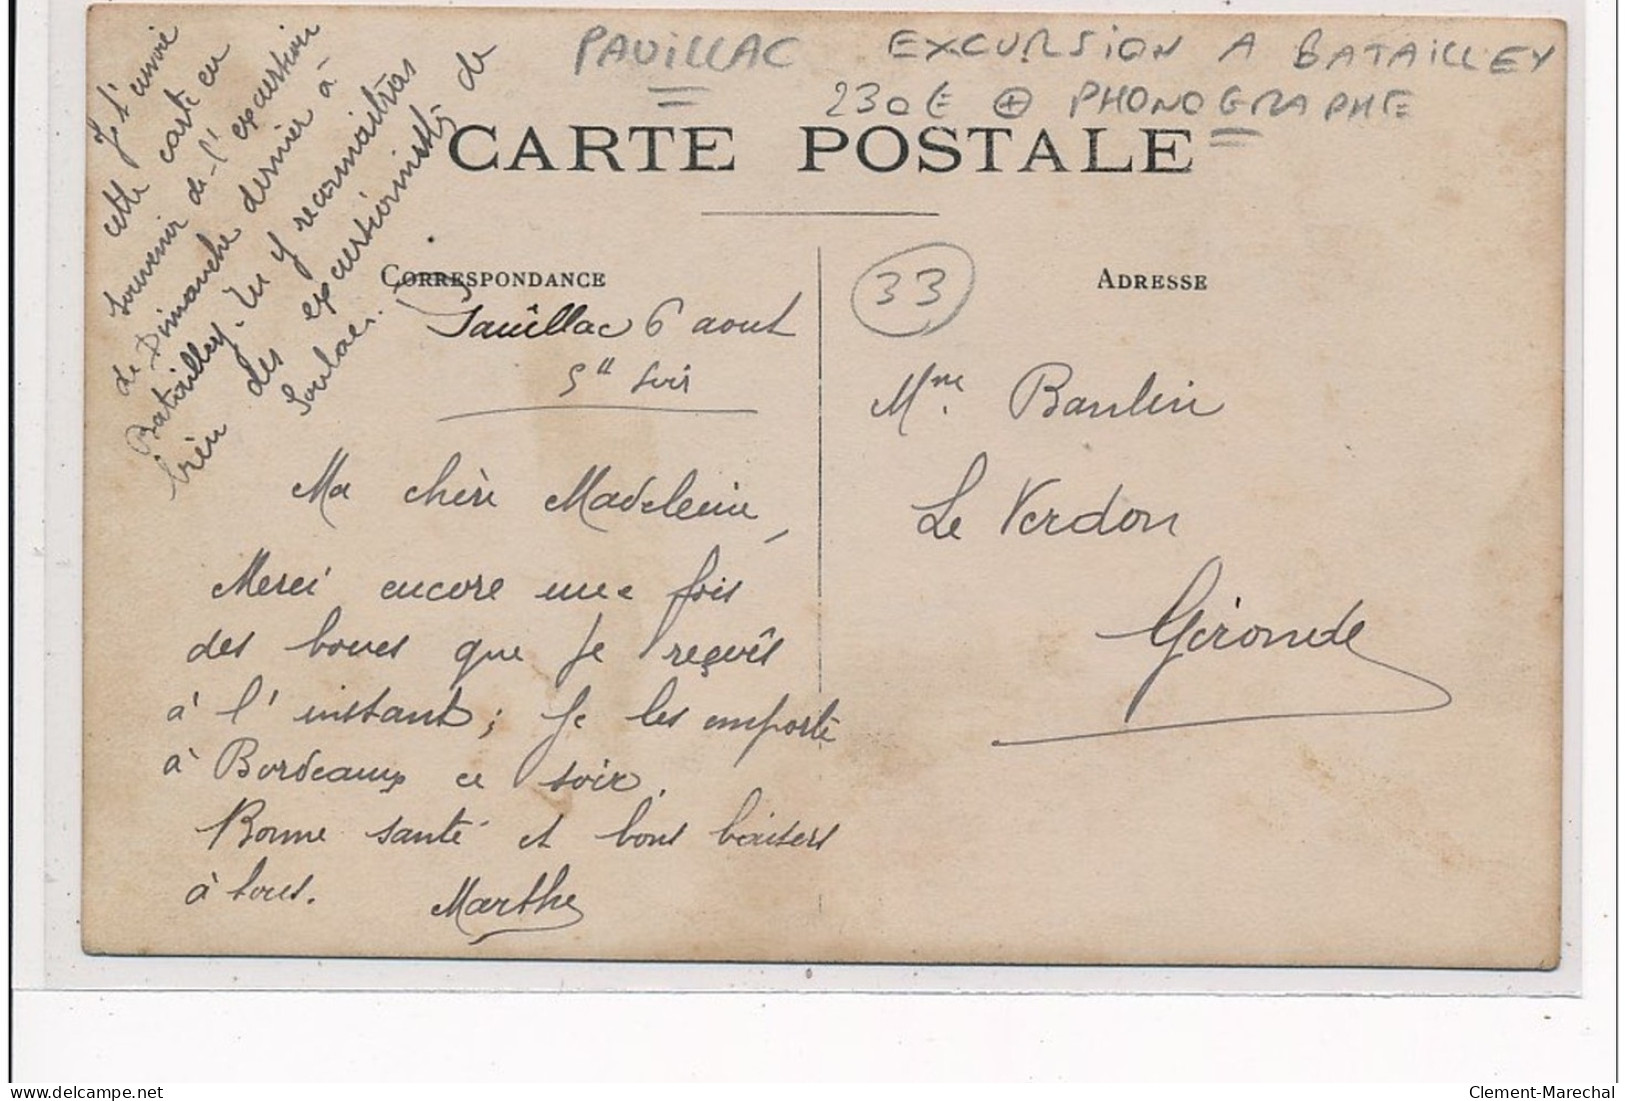 PAUILLAC EXCURSION A BATAILLEY
230E + PHONOGRAPHE
CARTE POSTALE
CORRESPONDANCE
ADRESSE
33
Je t'envoie
cette carte en
souvenir de l'excursion
de Dimanche dernier à
Batailley. Tu y reconnaitras
bien des excursionnistes de
Soulac.
Pauillac 6 aout
5 h soir
Ma chère Madeleine,
Merci encore une fois
des que je reçois
à l'instant; je les emporte
à Bordeaux ce soir.
Bonne santé et bons baisers
à tous. Marthe
Mme. Baulin
Le Verdon
Gironde
delcampe.net
Clement-Marechal